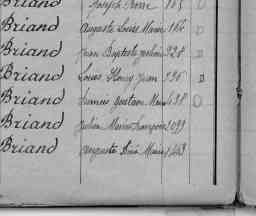 Joseph Pierre 165
Briand Auguste Louis Marie 164 D
Briand Jean Baptiste 928 D
Briand Louis Henry Jean 936 D
Briand Francis Gustave Marie 438 D
Briand Julien Marie François 1099
Briand Auguste Marie 1443